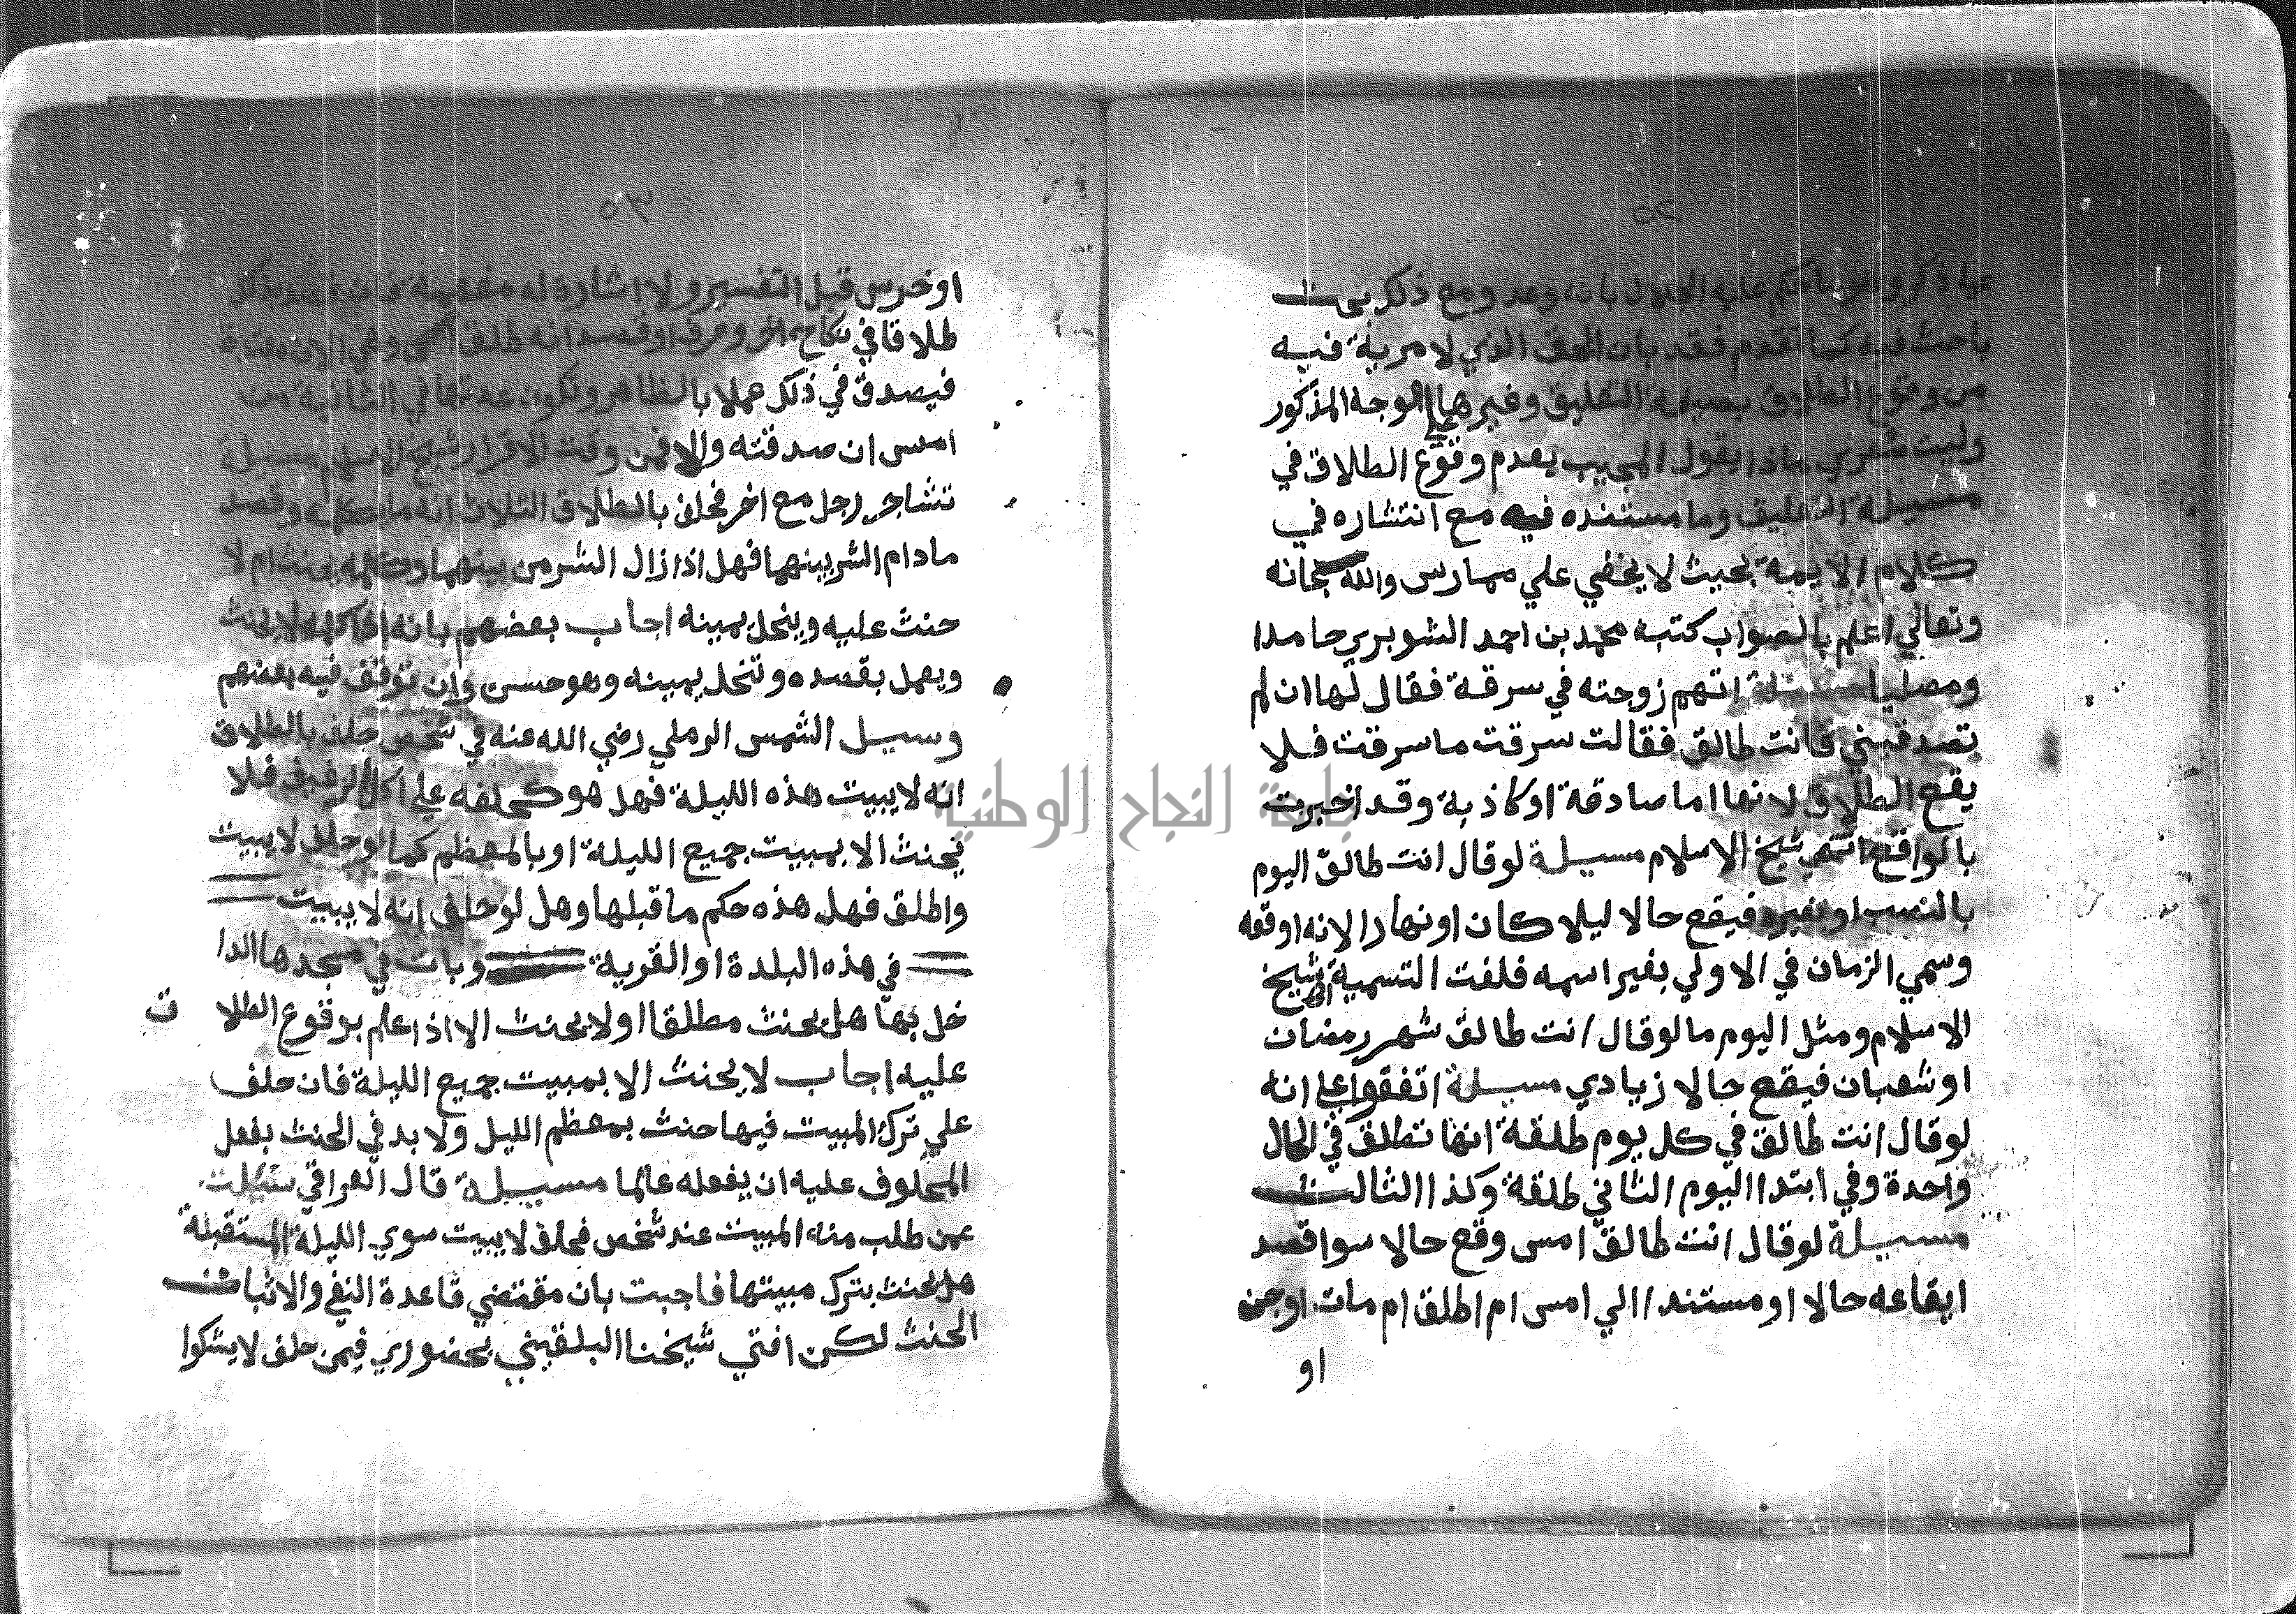 ٥٢
باحث فيه كما تقدم فقد بان الحق الذي لا مرية فيه
من وقوع الطلاق بصيغة التعليق وغيرها علي الوجه المذكور
وليت شعري ماذا يقول المجيب بعدم وقوع الطلاق في
مسيلة التعليق وما مستنده فيه مع انتشاره في
كلام الايمة بحيث لا يخفي علي ممارس والله سبحانه
وتعالي اعلم بالصواب كتبه محمد بن احمد الشوبري حامدا
ومصليا مسيلة اتهم زوجته في سرقة فقال لها ان لم
تصدقيني فانت طالق فقالت سرقت ما سرقت فلا
يقع الطلاق لانها اما صادقة او كاذبة وقد اخبرت
بالواقع انتهي شيخ الاسلام مسيلة لو قال انت طالق اليوم
بالنصب او بغيره فيقع حالا ليلا كان او نهارا لانه اوقعه
وسمي الزمان في الاولي بغير اسمه فلغت التسمية انتهي شيخ
الاسلام ومثل اليوم ما لو قال انت طالق شهر رمضان
او شعبان فيقع حالا زيادي مسيلة اتفقوا علي انه
لو قال انت طالق في كل يوم طلقة انها تطلق في الحال
واحدة وفي ابتدا اليوم الثاني طلقة وكذا الثالث
مسيلة لو قال انت طالق امس وقع حالا سوا قصد
ايقاعه حالا او مستندا الي امس ام اطلق ام مات او جن
او
٥٣
او خرس قبل التفسير ولا اشارة له مفهمة
طلاقا في نكاح اخر وعرف او قصد انه طلق امس وهي الان معتدة
فيصدق في ذلك عملا بالظاهر وتكون عدتها في الثانية من
امس ان صدقته والا فمن وقت الاقرار شيخ الاسلام مسيلة
تشاجر رجل مع اخر فحلف بالطلاق الثلاث انه ما يكلمه وقصد
ما دام الشر بينهما فهل اذا زال الشر من بينهما وكلمه يحنث ام لا
حنث عليه وينحل يمينه اجاب بعضهم بانه اذا كلمه لا يحنث
ويعمل بقصده وتنحل يمينه وهو حسن وان توقف فيه بعضهم
وسيل الشمس الرملي رضي الله عنه في شخص حلف بالطلاق
انه لا يبيت هذه الليلة فهل هو كحلفه علي اكل الرغيف فلا
يحنث الا بمبيت جميع الليلة او بالمعظم كما لو حلف لا يبيت
واطلق فهل هذه حكم ما قبلها وهل لو حلف انه لا يبيت
في هذه البلدة او القرية وبات في مسجدها الدا
خل بها هل يحنث مطلقا او لا يحنث الا اذا علم بوقوع الطلا ق
عليه اجاب لا يحنث الا بمبيت جميع الليلة فان حلف
علي ترك المبيت فيها حنث بمعظم الليل ولا بد في الحنث بفعل
المحلوف عليه ان يفعله عالما مسيلة قال العراقي سيلت
عمن طلب منه المبيت عند شخص فحلف لا يبيت سوي الليلة المستقبلة
هل يحنث بترك مبيتها فاجبت بان مقتضي قاعدة النفي والاثبات
الحنث لكن افتي شيخنا البلقيني بحضوري فيمن حلف لا يشكوا
جامعة النجاح الوطنية